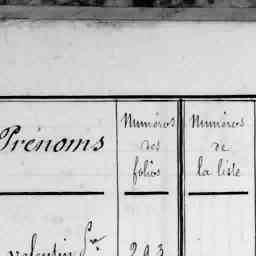 Prénoms
Numéros
des
folios
Numéros
de
la liste
valentin
293